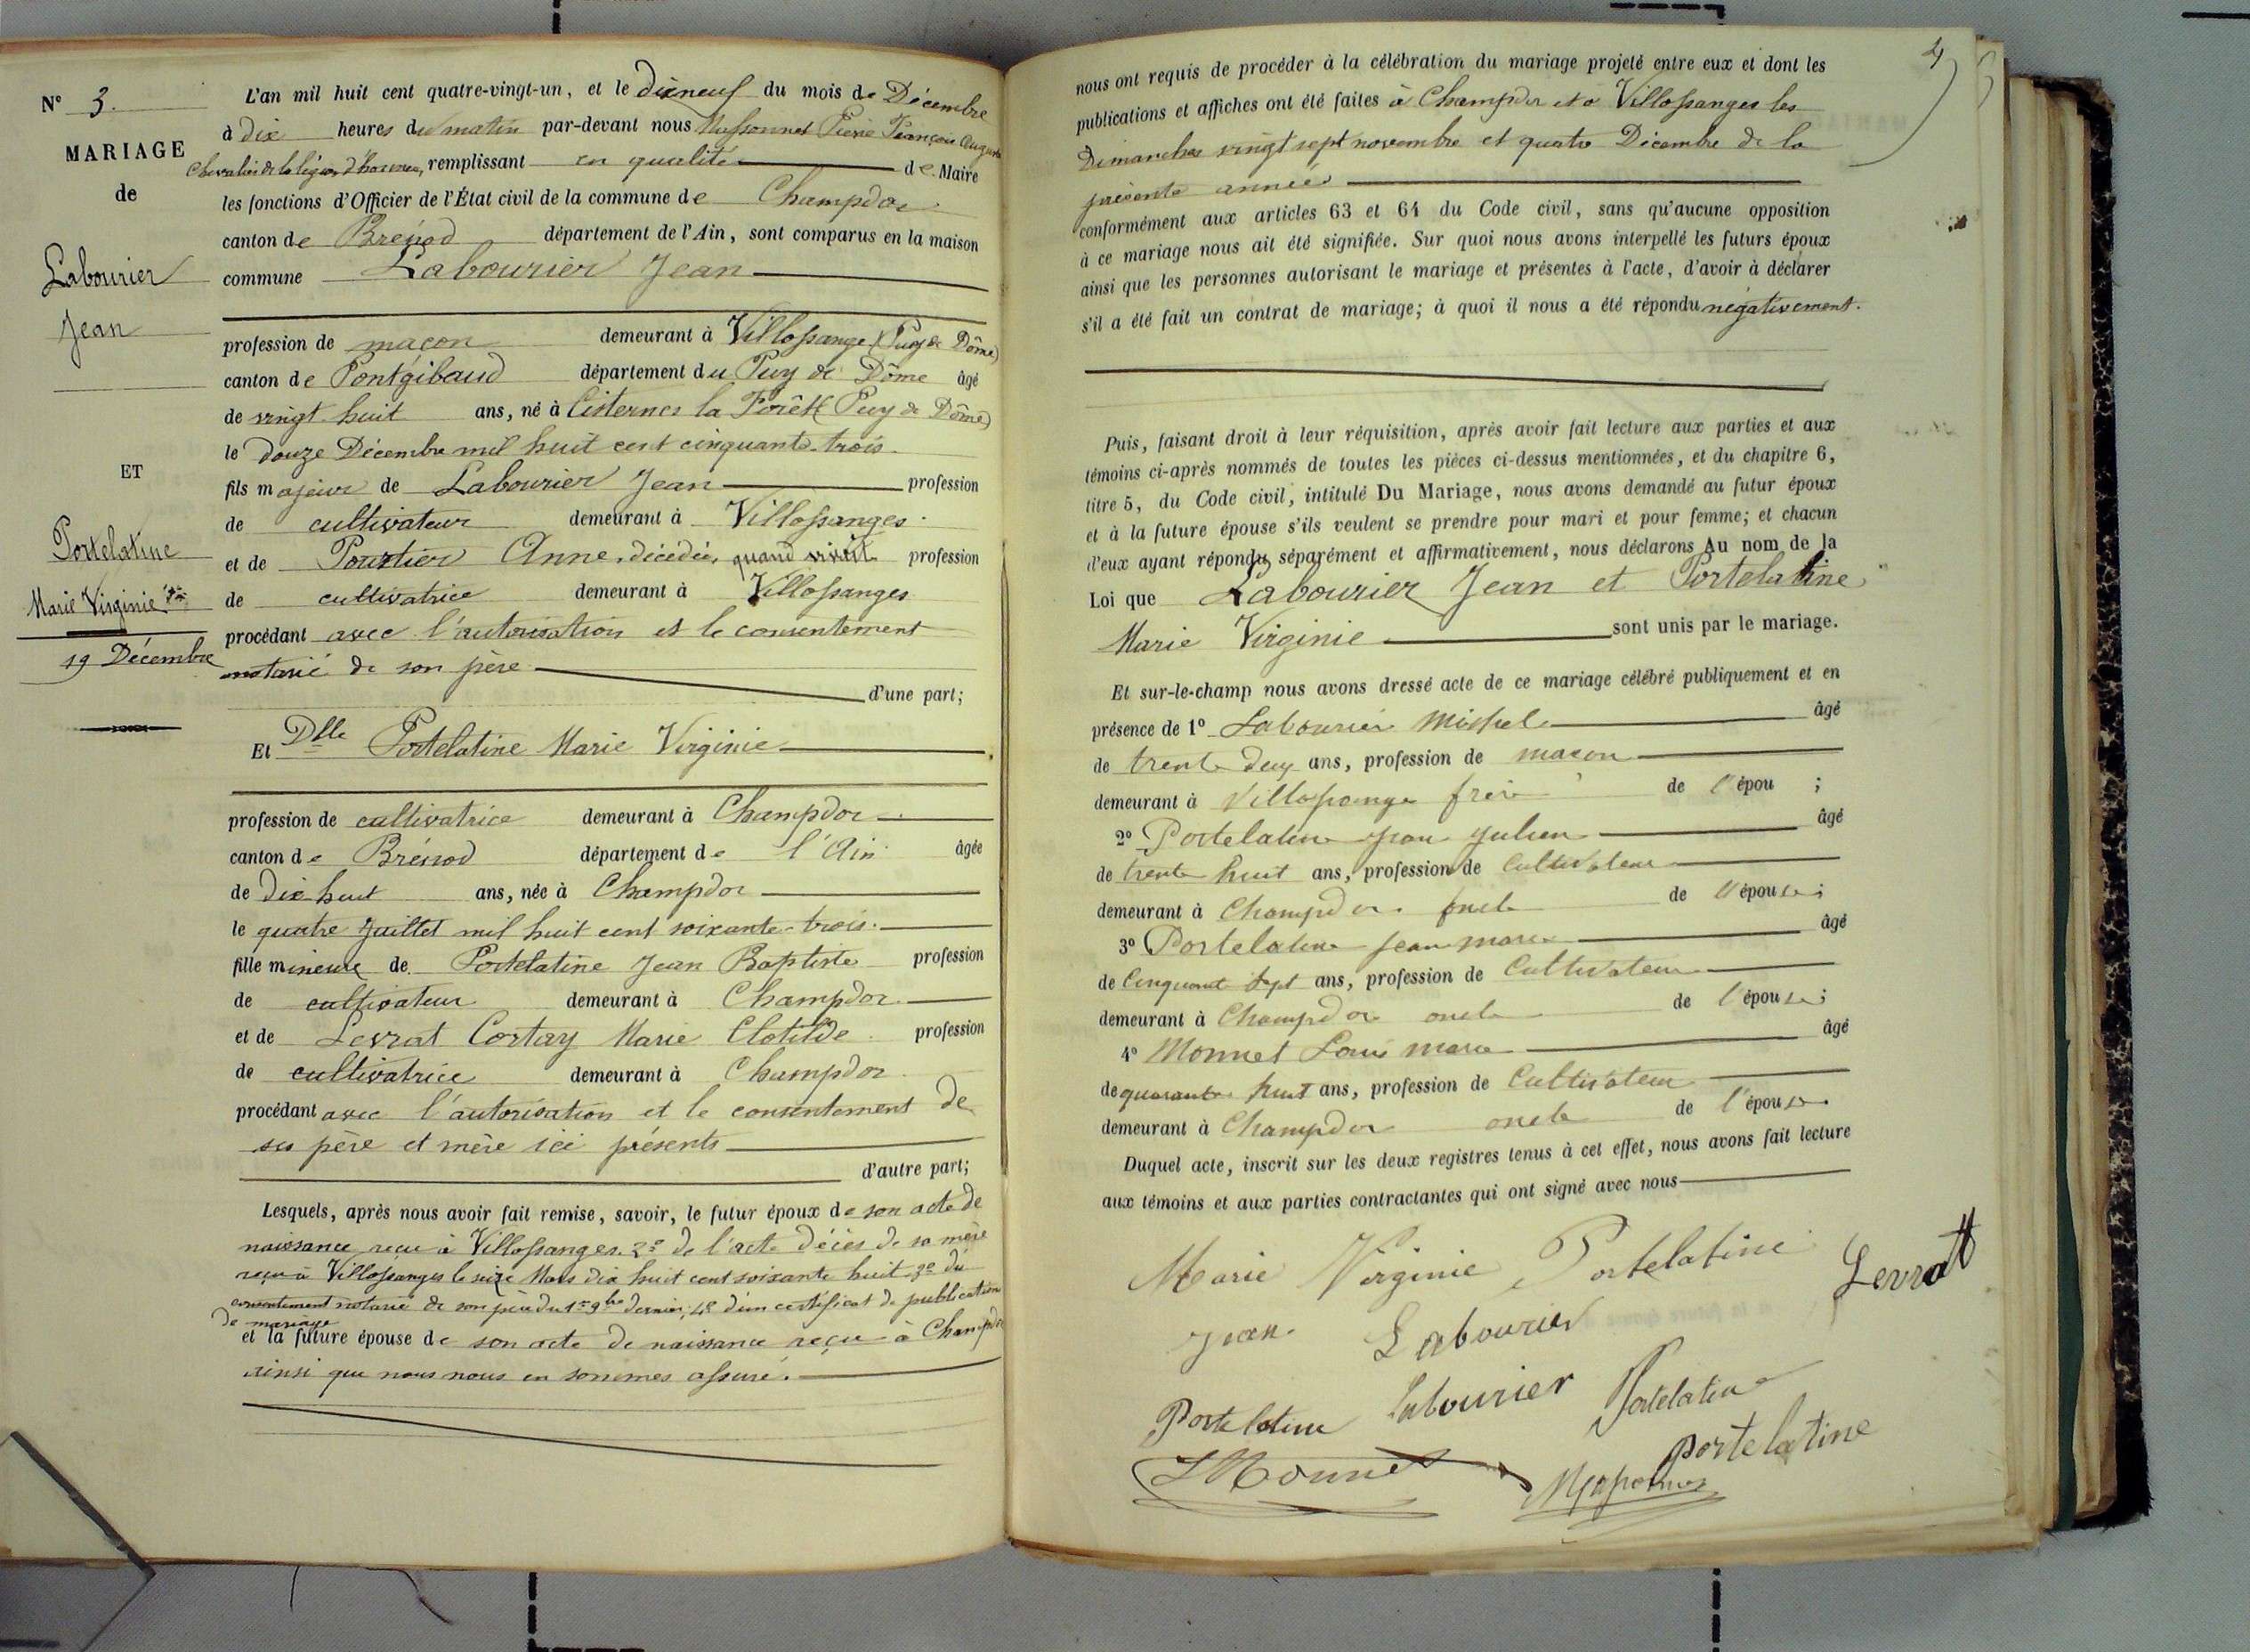 N° 3.
MARIAGE
de
Labourier
Jean
ET
Portelatine
Marie Virginie
19 Décembre
L'an mil huit cent quatre-vingt-un, et le dixneuf du mois de Décembre
à dix heures du matin par-devant nous Pierre François Auguste
Chevalier de la légion d'honneur, remplissant en qualité de Maire
les fonctions d'Officier de l'État civil de la commune de Champdor
canton de Brénod département de l'Ain, sont comparus en la maison
commune Labourier Jean
profession de maçon demeurant à Villossange (Puy de Dôme)
canton de Pontgibaud département du Puy de Dôme âgé
de vingt huit ans, né à Cisternes la Forêt (Puy de Dôme)
le douze Décembre mil huit cent cinquante-trois
fils majeur de Labourier Jean profession
de cultivateur demeurant à Villossanges
et de Pourtier Anne, décédée, quand vivait profession
de cultivatrice demeurant à Villossanges
procédant avec l'autorisation et le consentement
notarié de son père
d'une part;
Et Dlle Portelatine Marie Virginie
profession de cultivatrice demeurant à Champdor
canton de Brénod département de l'Ain âgée
de dix huit ans, née à Champdor
le quatre Juillet mil huit cent soixante-trois.
fille mineure de Portelatine Jean Baptiste profession
de cultivateur demeurant à Champdor
et de Levrat Cortay Marie Clotilde profession
de cultivatrice demeurant à Champdor
procédant avec l'autorisation et le consentement de
ses père et mère ici présents
d'autre part;
Lesquels, après nous avoir fait remise, savoir, le futur époux de son acte de
naissance reçu à Villossanges. 2° de l'acte décès de sa mère
reçu à Villossanges le seize Mars dix huit cent soixante huit 3° du
consentement notarié de son père du 1er 9bre dernier; 4° d'un certificat de publication
de mariage
et la future épouse de son acte de naissance reçu à Champdor
ainsi que nous nous en sommes assuré.
4
nous ont requis de procéder à la célébration du mariage projeté entre eux et dont les
publications et affiches ont été faites à Champdor et à Villossanges les
Dimanches vingt sept novembre et quatre Décembre de la
présente année
conformément aux articles 63 et 64 du Code civil, sans qu'aucune opposition
à ce mariage nous ait été signifiée. Sur quoi nous avons interpellé les futurs époux
ainsi que les personnes autorisant le mariage et présentes à l'acte, d'avoir à déclarer
s'il a été fait un contrat de mariage; à quoi il nous a été répondu négativement.
Puis, faisant droit à leur réquisition, après avoir fait lecture aux parties et aux
témoins ci-après nommés de toutes les pièces ci-dessus mentionnées, et du chapitre 6,
titre 5, du Code civil, intitulé Du Mariage, nous avons demandé au futur époux
et à la future épouse s'ils veulent se prendre pour mari et pour femme; et chacun
d'eux ayant répondu séparément et affirmativement, nous déclarons Au nom de la
Loi que Labourier Jean et Portelatine
Marie Virginie sont unis par le mariage.
Et sur-le-champ nous avons dressé acte de ce mariage célébré publiquement et en
présence de 1° Labourier Michel âgé
de trente deux ans, profession de maçon
demeurant à Villossange frère de l'épou ;
2° Portelatine Jean Julien âgé
de trente huit ans, profession de cultivateur
demeurant à Champdor oncle de l'épouse;
3° Portelatine Jean marie âgé
de cinquante sept ans, profession de cultivateur
demeurant à Champdor oncle de l'épouse;
4° Monnet Louis marie âgé
de quarante huit ans, profession de cultivateur
demeurant à Champdor oncle de l'épouse
Duquel acte, inscrit sur les deux registres tenus à cet effet, nous avons fait lecture
aux témoins et aux parties contractantes qui ont signé avec nous
Marie Virginie Portelatine Levrat
Jean Labourier
Portelatine Labourier Portelatine
Portelatine
LMonnet